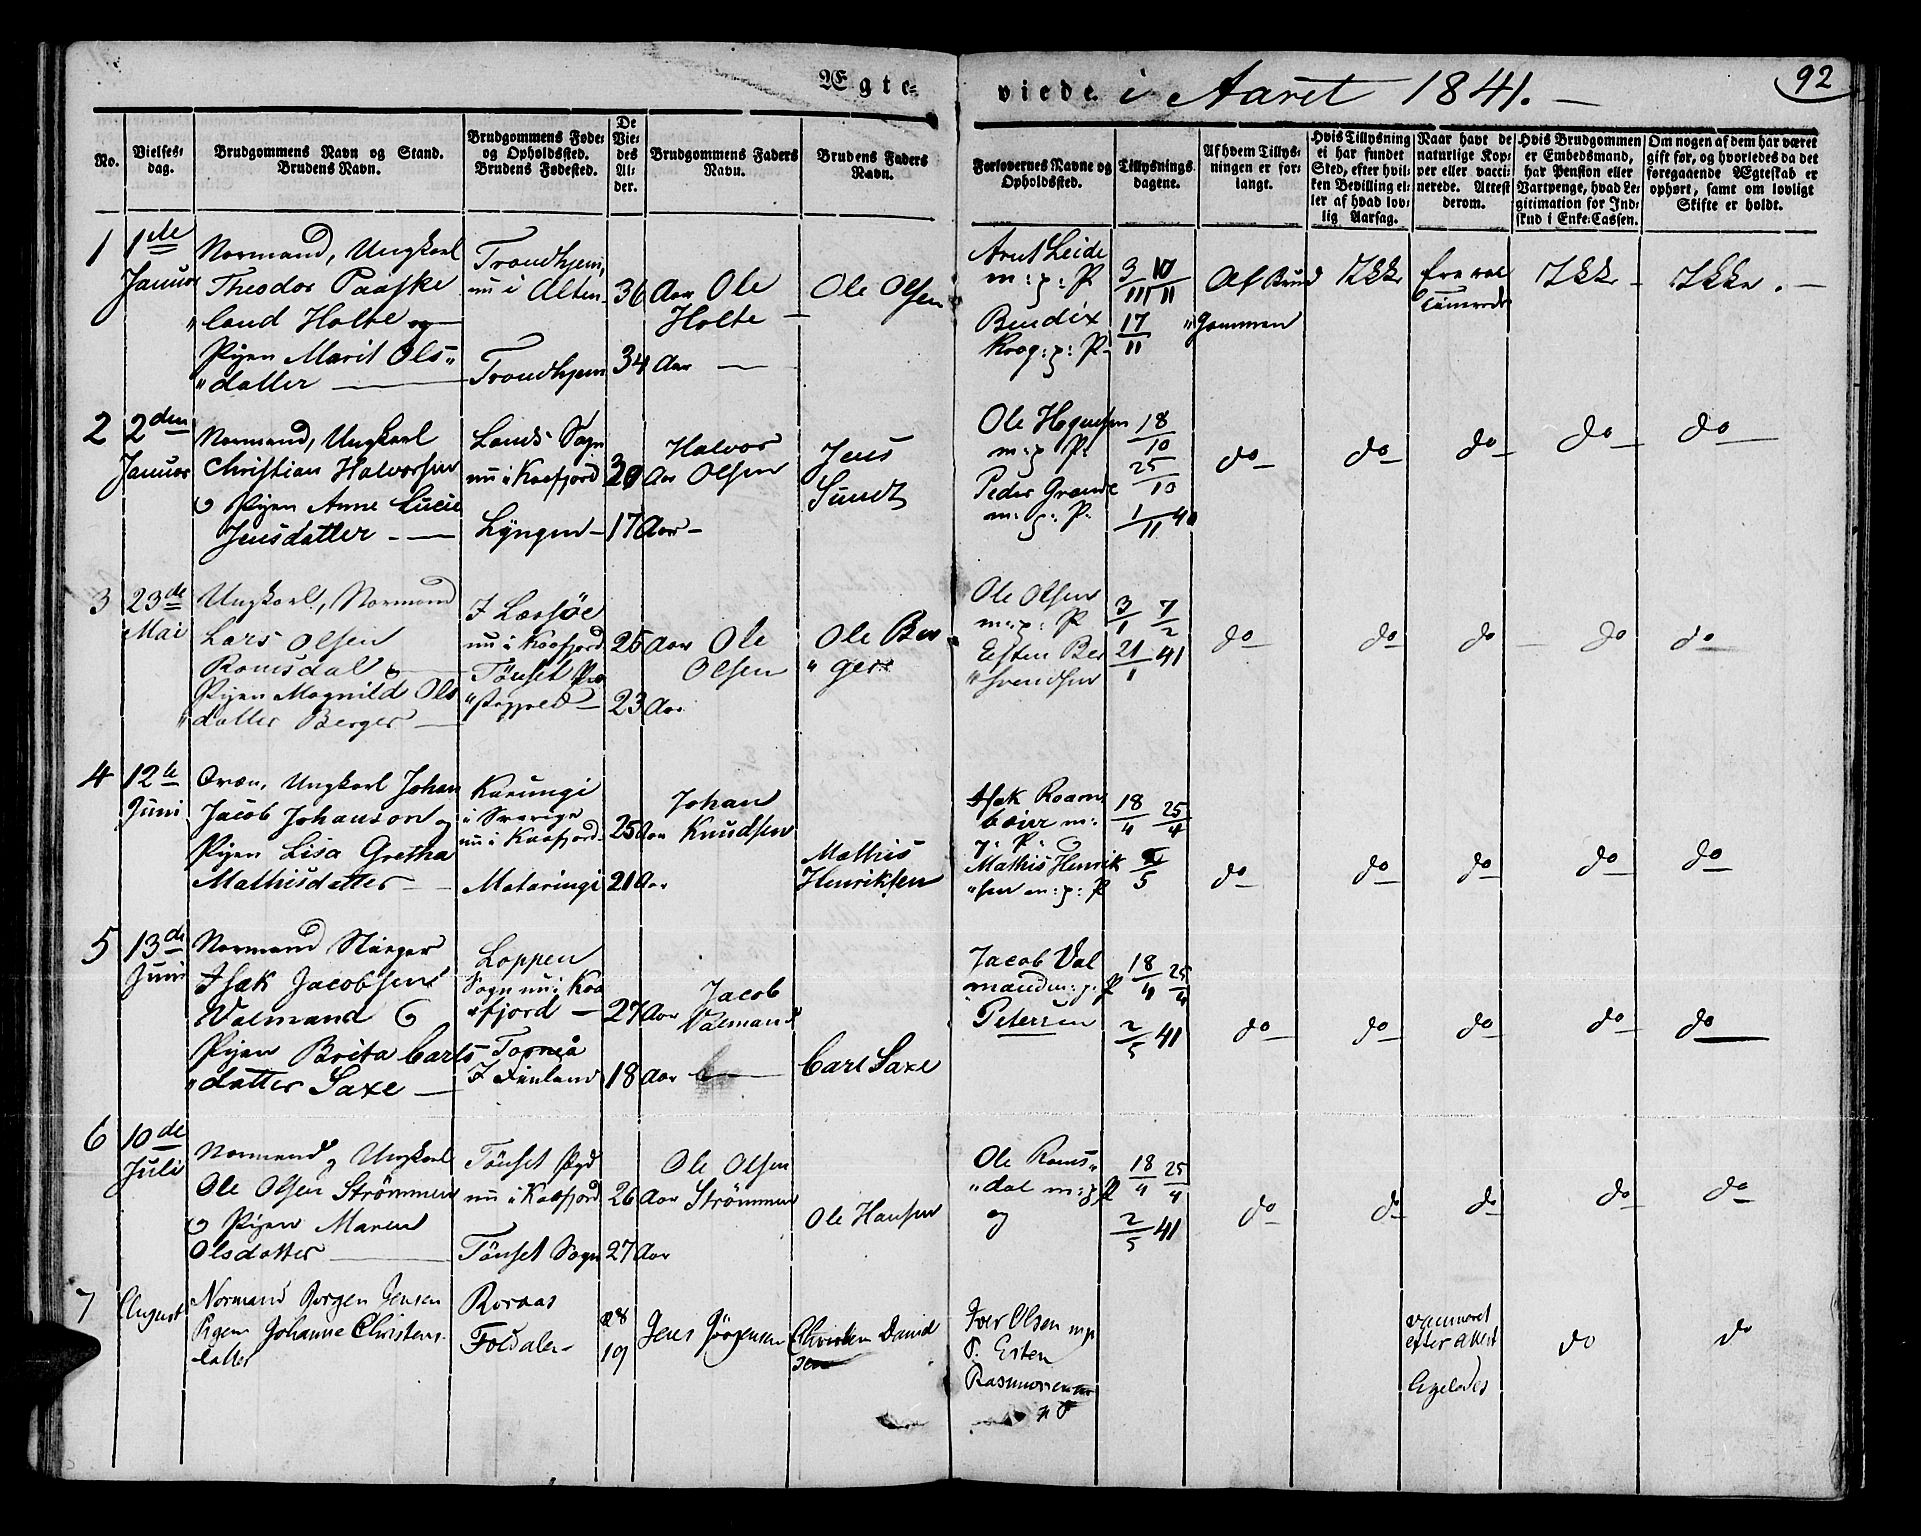 Ægte-
viede. i Aaret 1841. —
92
No.
Vielses-
dag.
Brudgommens Navn og Stand.
Brudens Navn.
Brudgommens Føde-
og Opholdssted.
Brudens Fødested.
De
Vie-
des
Al-
der.
Brudgommens Faders
Navn.
Brudens Faders
Navn.
Forlovernes Navne og
Opholdssted.
Tillysnings
dagene.
Af hvem Tillys-
ningen er for-
langt.
Hvis Tillysning
ei har fundet
Sted, efter hvil-
ken Bevilling el-
ler af hvad lov-
lig Aarsag.
Naar havt de
naturlige Kop-
per eller vacci-
nerede. Attest
derom.
Hvis Brudgommen
er Embedsmand,
har Pension eller
Vartpenge, hvad Le-
gitimation for Ind-
skud i Enke-Cassen.
Om nogen af dem har været
gift før, og hvorledes da det
foregaaende Ægteskab er
ophørt, samt om lovligt
Skifte er holdt.
1
1ste
Januar
Normand, Ungkarl
Theodor Paaske
"land Holte og
Pigen Marit Ols"
"datter
Trondhjem,
nu i Alten
Trondhjem
36 Aar
34 Aar
Ole
Holte
Ole Olsen
Arnt Leide
m: p: P
Bendix
Krog: p: P
3/11 10/11
17/11
Af Brud
"gommen
Ikke
Ikke
Ikke.
2
2den
Januar
Normand, Ungkarl
Christian Halvorsen
Pigen Anne Lucie
Jensdatter
Lands Sogn
nu i Kaafjord
Lyngen
Aar
17 Aar
Halvor
Olsen
Jens
Sundt
Ole
m: p P.
Peder Grande
m: p: P.
18/10
25/10
1/11 40
do
do
do
do
do
3
23de
Mai
Ungkarl, Normand
Lars Olsen
Romsdal
Pigen Magnild Ols
"datter Berger
I Læssöe
nu i Kaafjord
Tönset Præ
"stegjeld
25 Aar
23 Aar
Ole
Olsen
Ole Ber
"ger
Ole Olsen
m: p: P
Esten Ber
"svendsen
3/1 7/2
21/1 41
do
do
do
do
do
4
12te
Juni
Qvæn, Ungkarl Johan
Jacob Johanson og
Pigen Lisa Gretha
Mathisdatter
Karungi
i Sverige
nu i Kaafjord
Mataringi
25 Aar
21 Aar
Johan
Knudsen
Mathis
Henriksen
Isak
m:
p: P.
Mathis Henrik
"sen m: p: P
18/4 25/4
do
do
do
do
do
5
13de
Juni
Normand
Isak Jacobsen
Valmand
Pigen Brita Carls
"datter Saxe
Loppen
Sogn nu i Kaa
"fjord
Torneå
I Finland
27 Aar
18 Aar
Jacob
Valmand
Carl Saxe
Jacob Val
mand m: p: P
Petersen
18/4 25/4
2/5 41
do
do
do
do
do
6
10de
Juli
Normand, Ungkarl
Ole Olsen Strömmen
Pigen Maren
Olsdatter
Tönset Pgd
nu i Kaafjord
Tönset Sogn
26 Aar
27 Aar
Ole Olsen
Strömmen
Ole Hansen
Ole Roms"
"dal m: p P
og
18/4 25/4
2/5 41
do
do
do
do
do
7
August
Normand Jørgen Jensen
Pigen Johanne Christens
datter
Roraas
Foldalen
28
19
Jens Jörgensen
Christen David
sen
Iver Olsen mp
P. Esten
Rasmussen m
p P
vaccineret
efter Attest
do
do